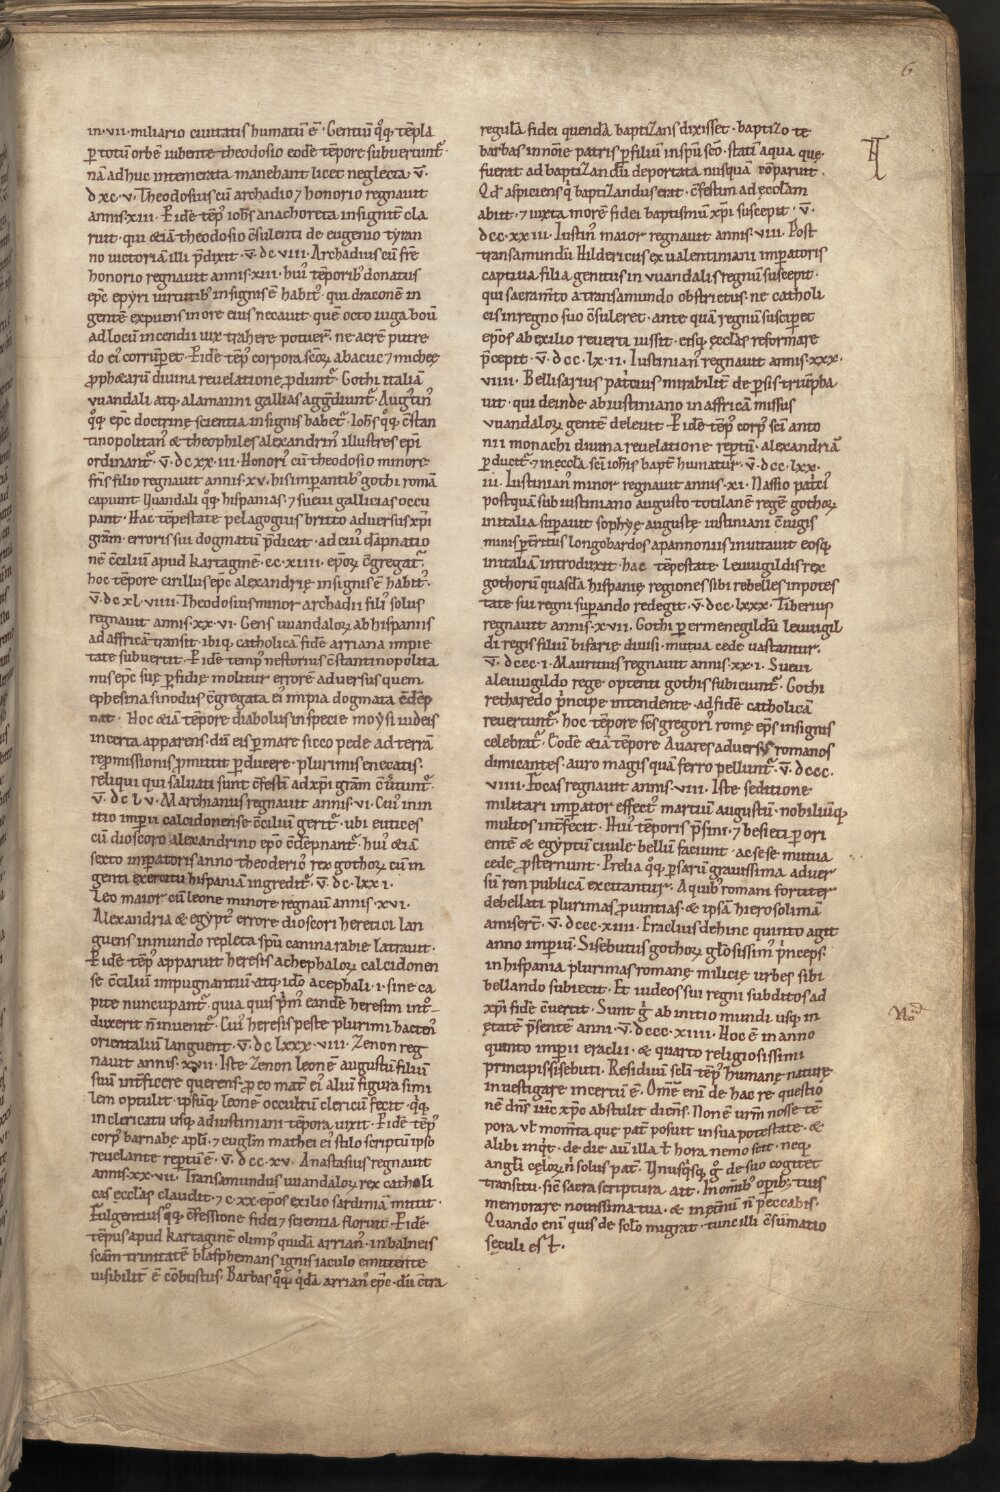 6
in·vii·miliario ciuitatis humatū ē· Gentiū q̊q; tēpla
ꝑ totū orbē iubente theodosio eodē tēpore subuertunt᷑·
nā adhuc intemerata manebant licet neglecta· v̄·
dxc·v· Theodosius cū archadio ⁊ honorio regnauit
annis·xiii· Eidē tēpꝰ iohs̄ anachoreta insignit̄ cla
ruit· qui &iā theodosio c̄sulenti de eugenio tyran
no uictoriā illi p̄dixit· v̄·dc viii· Archadius cū fr̄e
honorio regnauit annis·xiii· huiꝰ tēporibꝰ donatus
ep̄c epyri uirtutibꝰ insignis ē habitꝰ· qui draconē in
gentē expuens in ore eius necauit· quē octo iuga boū
ad locū incendii uix trahere potuer̄· ne aerē putre
do eiꝰ corrūꝑet· Eidē tēpꝰ corpora sc̄oꝝ abacuc ⁊ micheę
ꝓph&arū diuina reuelatione ꝓdunt᷑· Gothi italiā
vuandali atq; alamanni gallias aggꝛ̄diunt᷑· Augꝰtinꝰ
q̊q; ep̄c doctrinę scientia insignis habet᷑· Iohs̄ q̊q; c̄stan
tinopolitanꝰ & theophiles alexandrinꝰ illustres ep̄i
ordinant᷑· v̄·dcxx·iii· Honoriꝰ cū theodosio minore
fr̄is filio regnauit annis·xv· his imꝑantibꝰ gothi romā
capiunt Uuandali q̊q; hispanias· ⁊ sueui gallicias occu
pant· Hac tēpestate pelagogius britto aduersus xp̄i
gr̄am· erroris sui dogmatū p̄dicat· ad cuiꝰ dāpnatio
nē c̄ciliū apud kartaginē·cc·xiiii·ep̄oꝝ c̄gregat᷑·
hoc tēpore cirillus ep̄c alexandrię insignis ē habitꝰ·
v̄·dc xl·viiii· Theodosius minor archadii filiꝰ solus
regnauit annis·xx·vi· Gens uuandaloꝝ ab hispaniis
ad affricā transit· ibiq; catholicā fidē arriana impie
tate subuertit· Eidē tempꝰ nestorius c̄stantinopolita
nus ep̄c suę ꝑfidię molitur errorē aduersus quem
ephesina sinodus c̄gregata eiꝰ impia dogmata c̄dēp
nat· Hoc &iā tēpore diabolus in specie moysi iudeis
in creta apparens· dū eis ꝑ mare sicco pede ad terrā
rep̄missionis ꝓmittit ꝑducere· plurimis enecatis·
reliqui qui saluati sunt c̄festī ad xp̄i gr̄am c̄ūtunt᷑·
v̄·dc lv· Marchianus regnauit annis·vi· Cuiꝰ inin
itio impii calcidonense c̄ciliū gerit᷑· ubi eutices
cū dioscoro alexandrino ep̄o c̄dēpnant᷑· huiꝰ &iā
sexto imꝑatoris anno theodericꝰ rex gothoꝝ cū in
genti exercitu hispaniā ingredit᷑· v̄·dc·lxxi·
Leo maior cū leone minore regnau᷑ annis·xvi·
Alexandria & egyptꝰ errore dioscori heretici lan
guens inmundo repleta sp̄u canina rabie latrauit·
Eidē tēpꝰ apparuit heresis achephaloꝝ calcidonen
se c̄ciliū impugnantiū· atq; ido acephali·i·sine ca
pite nuncupant᷑ quia quis p̄mꝰ eandē heresim intᵒ
duxerit n̄ inuenit᷑· Cuiꝰ heresis peste plurimi hactenꝰ
orientaliū languent· v̄·dc lxxx·viii· Zenon reg
nauit annis·xvii· Iste Zenon leonē augustū filiū
suū int̄ficere querens· ꝓ eo mat̄ eiꝰ aliū figura simi
lem optulit· ipsūq; leonē occultū clericū fecit· q̇q;
in clericatu usq; ad iustiniani tēpora uixit· Eidē tēpꝰ
corpꝰ barnabę apl̄i· ⁊ euglm̄ mathei eiꝰ stilo scriptū ipso
reuelante reptū ē· v̄·dcc·xv· Anastasius regnauit
annis·xx·vii· Transamundus uuandaloꝝ rex catholi
cas ęccl̄as claudit· ⁊ c·xx·ep̄os exilio sardiniā mittit·
Fulgentius q̊q; c̄fessione fidei ⁊ scientia floruit· Eidē
tēpus apud kartaginē olimpꝰ quidā arrianꝰ· in balneis
sc̄am trinitatē blasphemans ignis iaculo emittente
uisibilit̄ ē cōbustus· Barbas q̊q; q̇dā arrianꝰ ep̄c· dū c̄tra
regulā fidei quendā baptizans dixisset· baptizo te
barbas in noīe patris ꝑ filiū in sp̄u sc̄o· statī aqua quę
fuerat ad baptizandū deportata nusquā cōparuit·
Qd̄ aspiciens q̇ baptizandus erat· c̄festim ad ęccl̄am
abiit· ⁊ iuxta morē fidei baptismū xp̄i suscepit· v̄·
dcc·xxiii· Iustinꝰ maior regnauit annis·viii· Post
transamundū Hildericus ex ualentiniani imꝑatoris
captiua filia genitus in vuandalis regnū suscepit·
qui sacram̄to a transamundo obstrictus· ne catholi
cis in regno suo c̄suleret· ante quā regnū susciꝑet
ep̄os ab exilio reuerti iussit· eisq; ęccl̄as reformare
p̄cepit· v̄·dcc·lx·ii· Iustinianꝰ regnauit annis·xxx·
viiii· Bellisarius patꝛ̄ius mirabilit̄ de ꝑsis triūpha
uit· qui deinde ab iustiniano in affricā missus
vuandaloꝝ gentē deleuit· Eidē tēpꝰ corpꝰ sc̄i anto
nii monachi diuina reuelatione reptū· alexandriā
ꝑducit᷑· ⁊ in ęccl̄a sc̄i ioh̄is bapt̄ humatur· v̄·dcc·lxx·
iii· Iustinianꝰ minor regnauit annis·xi· Naſſio patꝛ̄iꝰ
postquā sub iustiniano augusto totilanē regē gothoꝝ
in italia suꝑauit sophyę augustę iustiniani c̄iugis
minis ꝑt̄ritus longobardos a pannoniis inuitauit eosq;
in italiā introduxit· hac tēpestate leuuigildis rex
gothorū quasdā hispanię regiones sibi rebelles in potes
tate sui regni suꝑando redegit· v̄·dcc·lxxx· Tiberius
regnauit annis·xvii· Gothi ꝑ ermenegildū leuuigil
di regis filiū bifarię diuisi· mutua cede uastantur·
v̄·dccc·i· Mauritius regnauit annis·xx·i· Sueui
a leuuigildo rege optenti gothis subiciunt᷑· Gothi
recharedo p̄ncipe intendente· ad fidē catholicā
reuertunt᷑· hoc tēpore sc̄s gregoriꝰ romę ep̄s insignis
celebrat᷑· Eodē &iā tēpore Auares aduersꝰ romanos
dimicantes· auro magis quā ferro pellunt᷑· v̄·dccc·
viiii· Focas regnauit annis·viii· Iste seditione
militari imꝑator effectꝰ martiū augustū· nobiliūq;
multos int̄fecit· Huiꝰ tēporis p̄sini· ⁊ befieti ꝑ ori
entē & egyptū ciuile bellū faciunt· ac sese mutua
cede ꝓsternunt· Prelia q̊q; ꝑsarū grauissima aduer
sū rem publicā excitantur· A quibꝰ romani fortiter
debellati plurimas ꝓuintias· & ipsā hierosolimā
amisert᷑· v̄·dccc·xiiii· Eraclius dehinc quinto agit
anno imꝑiū· Sisebutus gothoꝝ glōsissimꝰ p̄nceps·
in hispania plurimas romanę milicię urbes sibi
bellando subiecit· Et iudeos sui regni subditos ad
xp̄i fidē c̄uertit· Sunt g̊ ab initio mundi usq; in
ętatē p̄sentē anni·v̄·dccc·xiiii· Hoc ē in anno
quinto imꝑii eraclii· & quarto religiosissimi
principis sisebuti· Residuū sc̄li tēpꝰ humanę naturę
inuestigare incertū ē· Om̄ē enī de hac re questio
nē dn̄s iħc xp̄c abstulit dicens· Non ē ur̄m nosse tē
pora ut̄ momt̄a quę pat̄ posuit in sua potestate· &
alibi inq̇t· de die au᷑ illa t̄ hora nemo scit· neq;
angl̄i cęloꝝ n̄ solus pat̄· Unusq̇sq; g̊ de suo cogitet
transitu· sic̄ sacra scriptura ait· In om̄ibꝰ oꝑibꝰ tuis
memorare nouissima tua· & inęt̄nū n̄ peccabis·
Quando enī quis de sc̄lo migrat· tunc illi c̄sūmatio
sęculi est·